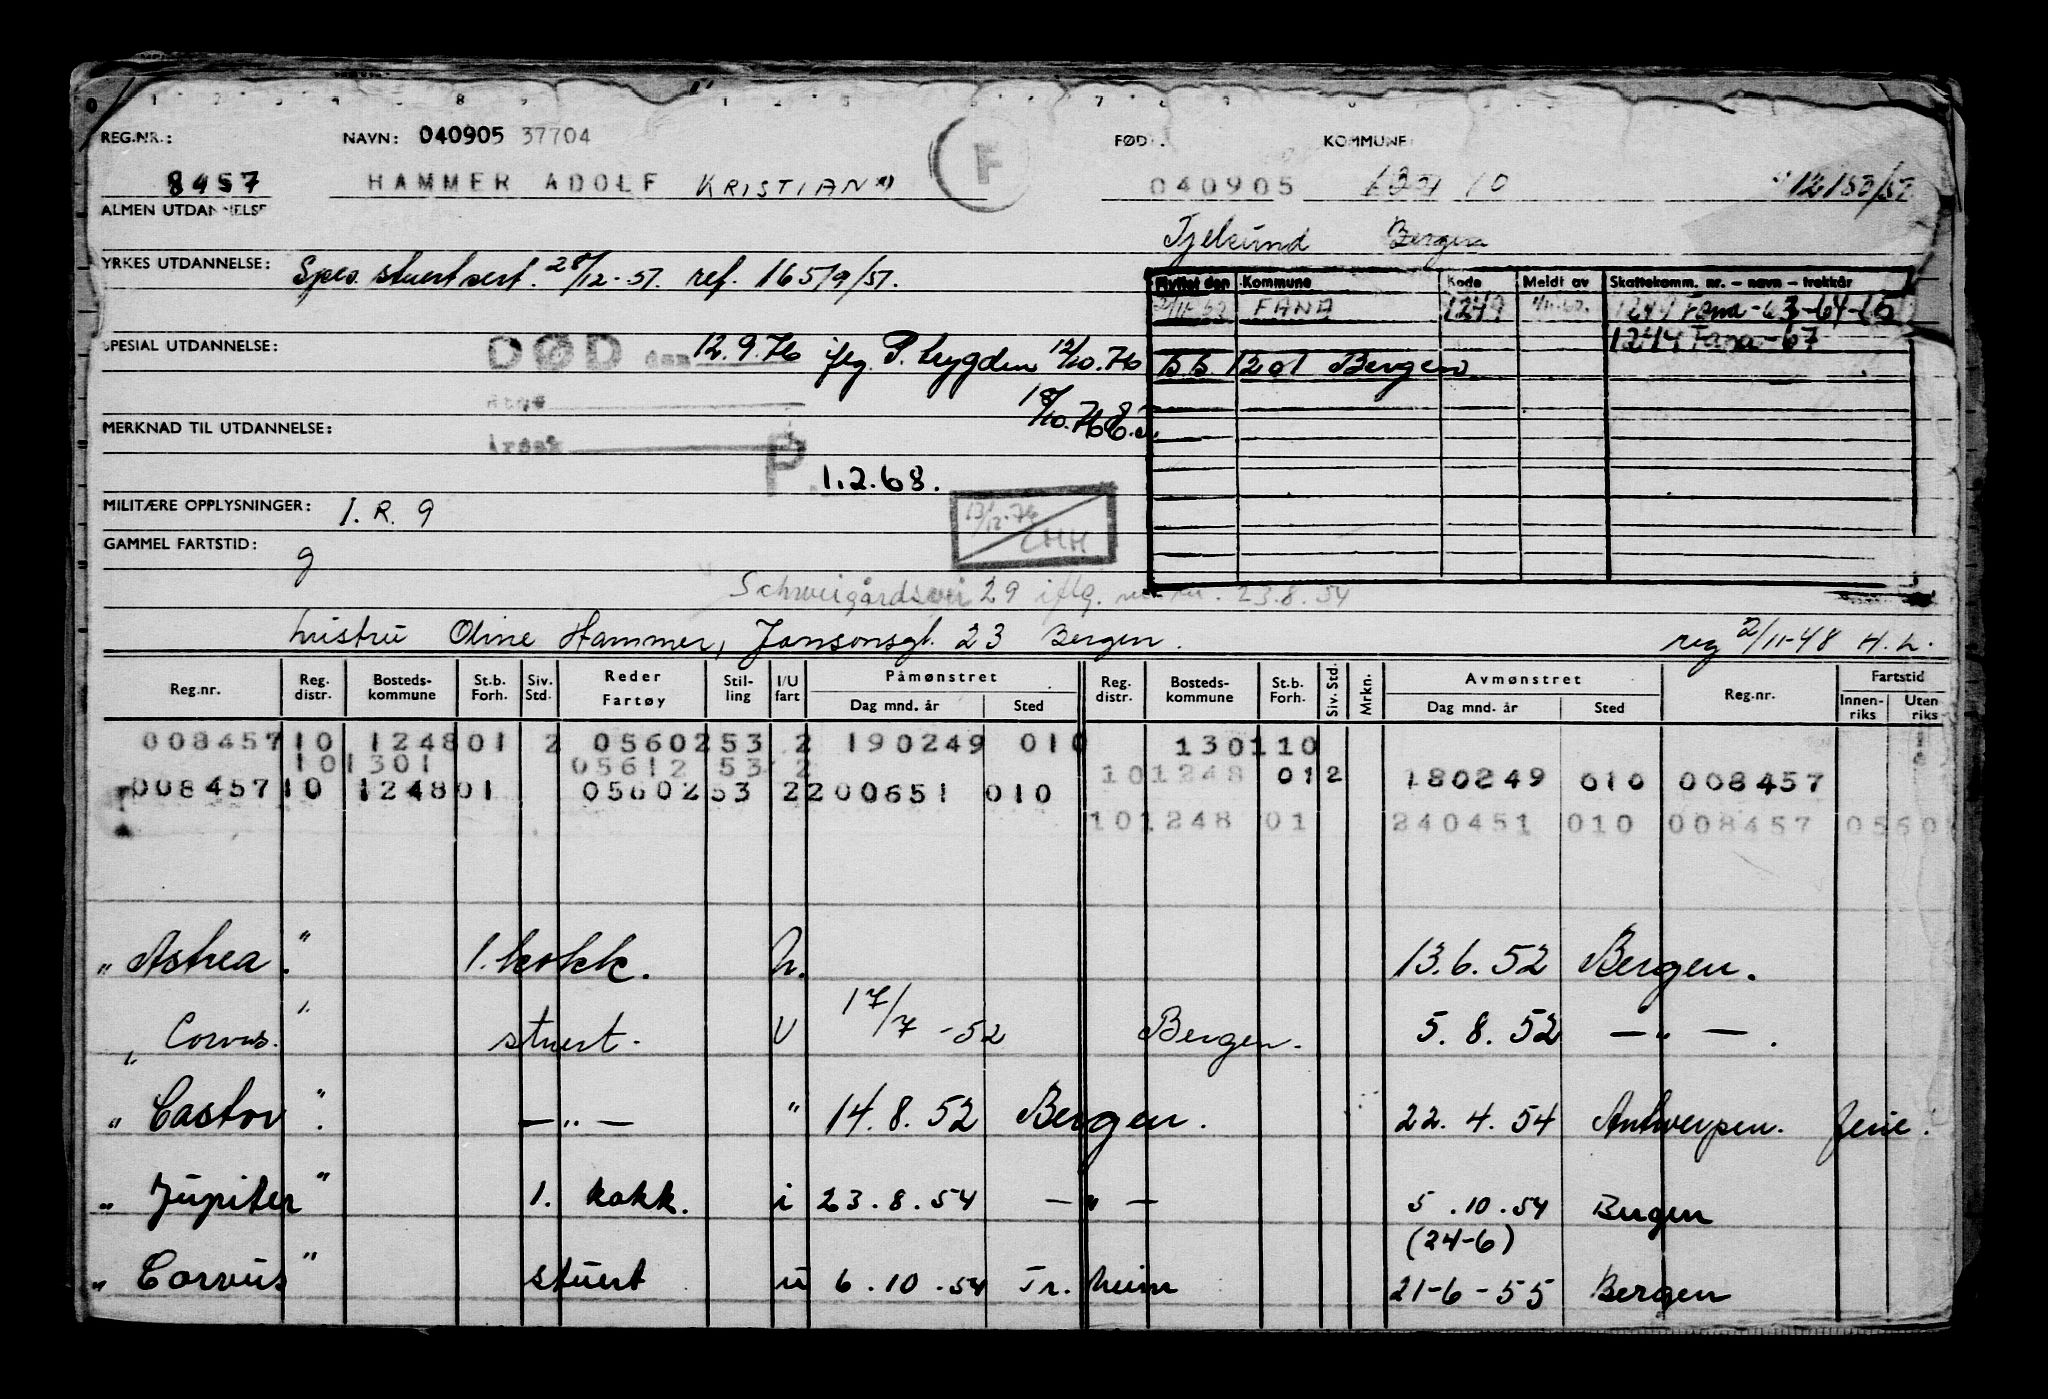 REG.NR.: NAVN: 040905 37704 FØD KOMMUNE
8457 HAMMER ADOLF KRISTIAN F 040905 10
ALMEN UTDANNELSE
Bergen
YRKES UTDANNELSE: Spes. stuertsert. 28/12-51. ref. 1651/9/51.
Flyttet den Kommune Kode Meldt av Skattekomm. nr. – navn – trekkår
FANA 1249 Fana-63-64-65
1244 Fana-67
SPESIAL UTDANNELSE: DØD den 12.9.76 iflg. P. Lygden 12/10.76 1201 Bergen
18/10.76
MERKNAD TIL UTDANNELSE:
P. 1.2.68.
MILITÆRE OPPLYSNINGER: I. R. 9
13/12-76 CHH
GAMMEL FARTSTID: 9
Schweigårdsvei 29 iflg. 23.8.54
hustru Oline Hammer, Jansonsgt. 23 Bergen. reg 2/11-48 H.L.
Reg.nr. Reg. distr. Bosteds- kommune St.b. Forh. Siv. Std. Reder Fartøy Stil- ling I/U fart Påmønstret Dag mnd. år Sted Reg. distr. Bosteds- kommune St.b. Forh. Siv. Std. Mrkn. Avmønstret Dag mnd. år Sted Reg.nr. Fartstid Innen- riks Uten riks
008457 10 1248 01 2 05602 53 2 190249 010 130110
10 1301 05612 53 2 10 1248 01 2 180249 010 008457
008457 10 1248 01 05602 53 2 200651 010
10 1248 01 240451 010 008457 0560
„ Astrea " 1. kokk. 13.6.52 Bergen.
„ Corvus. " stuert. U 17/7-52 Bergen. 5.8.52 — „ —.
„ Castor " — „ — " 14.8.52 Bergen. 22.4.54 Antwerpen. ferie.
„ Jupiter " 1. kokk. i 23.8.54 — „ — 5.10.54 Bergen
(24-6)
„ Corvus " stuert u 6.10.54 Tr.heim 21-6-55 Bergen